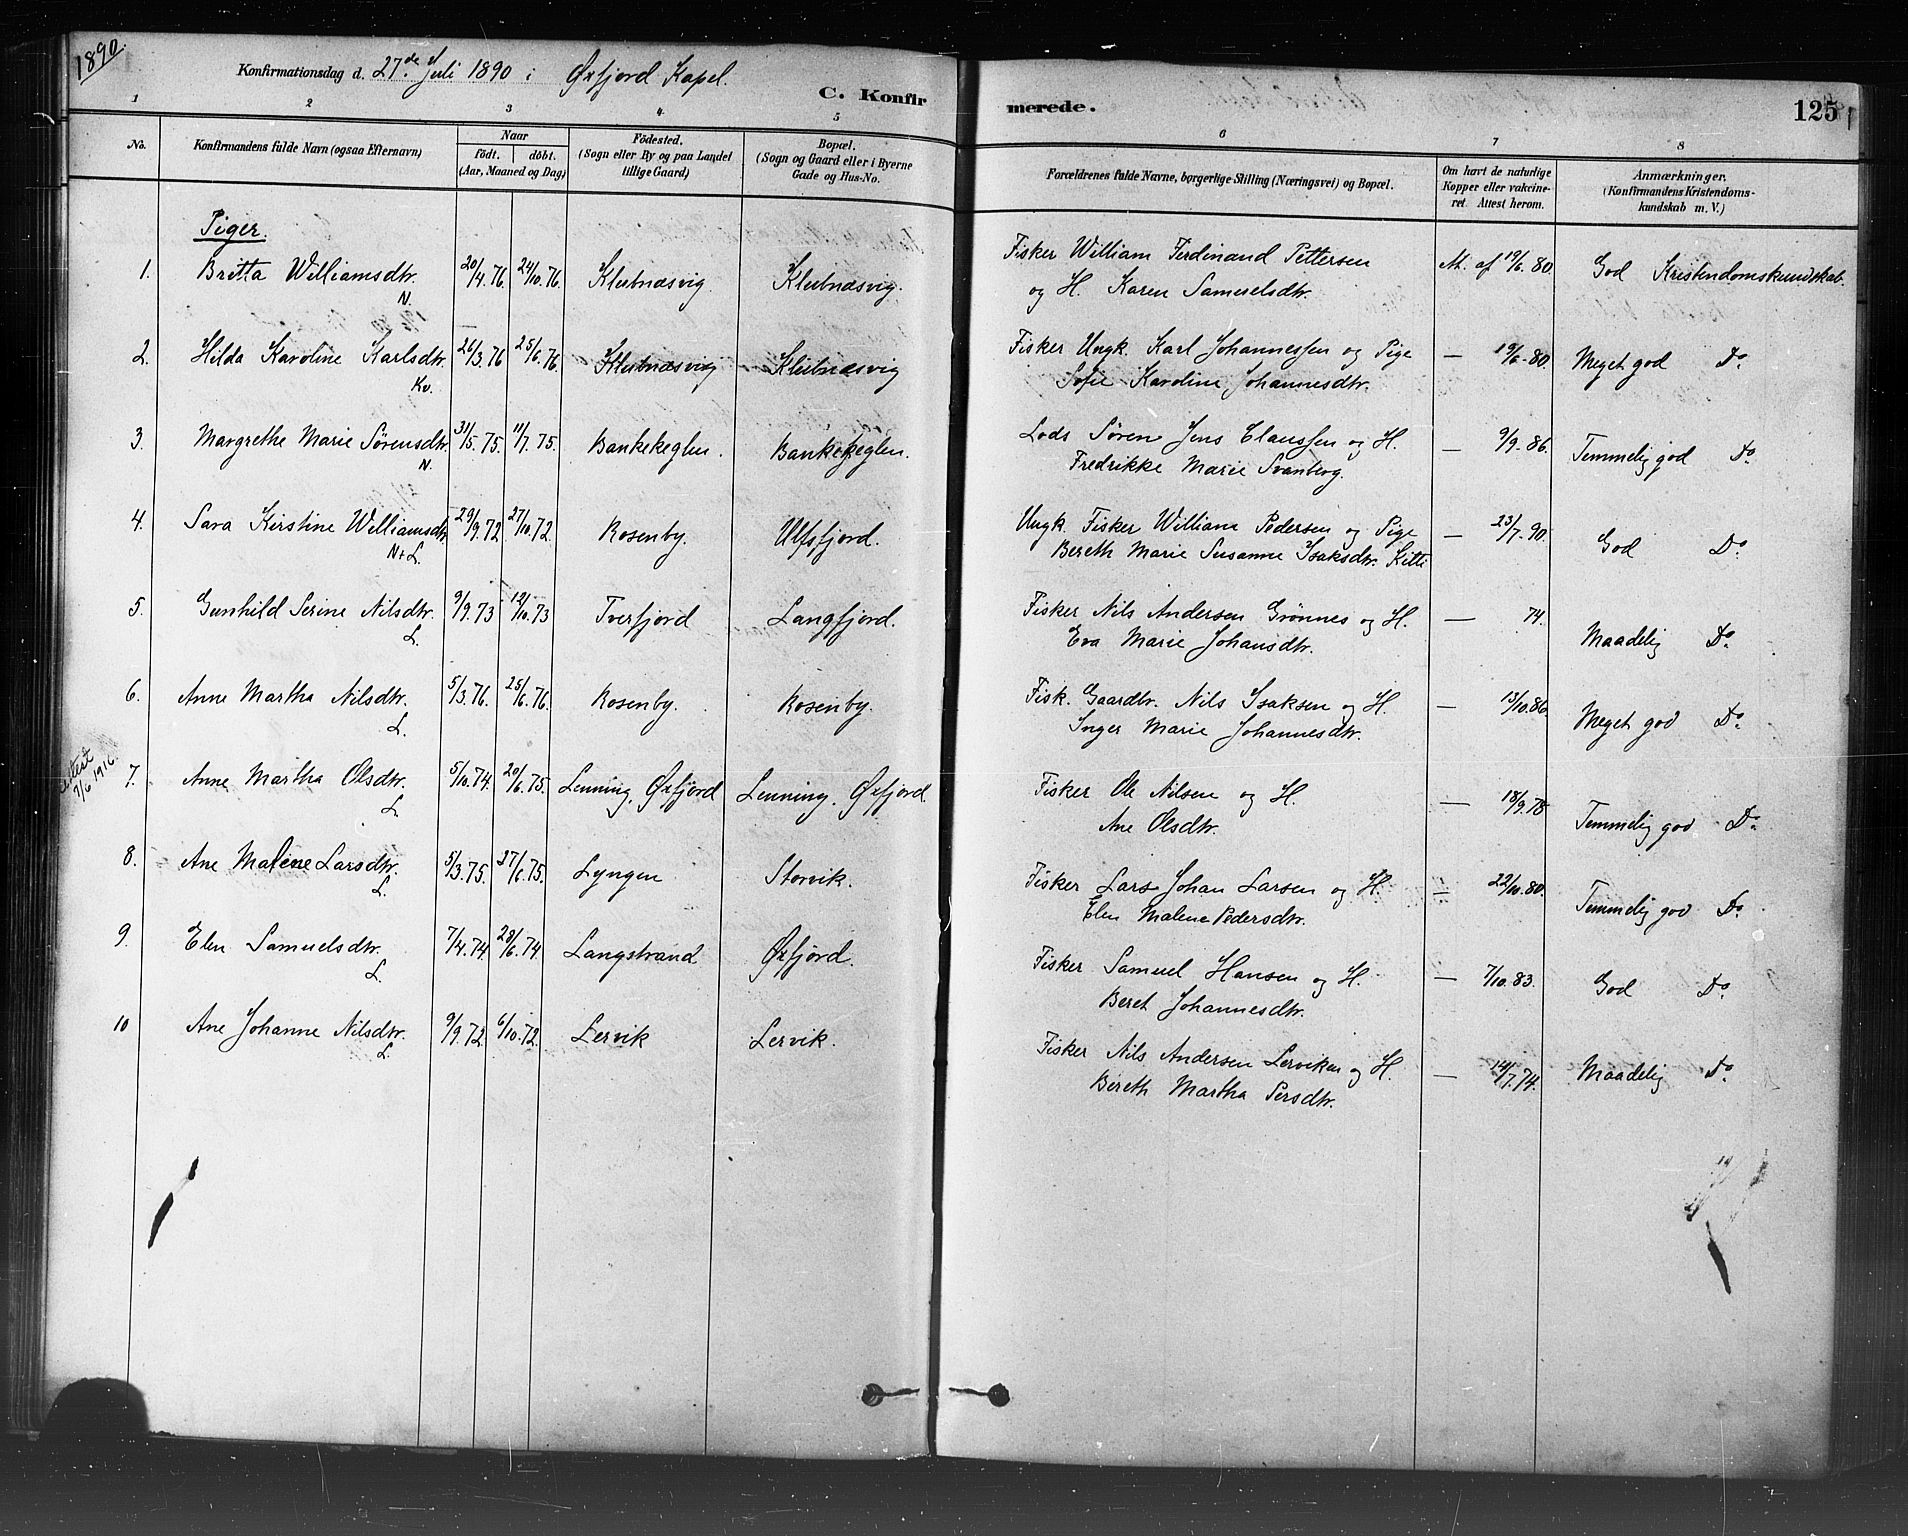 1890.
Konfirmationsdag d. 27de Juli 1890 i Øxfjord Kapel.
C. Konfirmerede.
125
1 2 3 4 5 6 7 8
No.
Konfirmandens fulde Navn (ogsaa Efternavn)
Naar
födt. döbt.
(Aar, Maaned og Dag)
Födested.
(Sogn eller By og paa Landet
tillige Gaard)
Bopæl.
(Sogn og Gaard eller i Byerne
Gade og Hus-No.
Forældrenes fulde Navne, borgerlige Stilling (Næringsvei) og Bopæl.
Om havt de naturlige
Kopper eller vakcine-
ret. Attest herom.
Anmærkninger.
(Konfirmandens Kristendoms-
kundskab m. V.)
Piger.
1. Britta Williamsdtr. 20/4.76. 24/10.76. Klubnæsvig. Klubnæsvig. Fisker William Ferdinand Pettersen At. af 19/6.80. God Kristendomskundskab.
N. og H. Karen Samuelsdtr.
2. Hilda Karoline Karlsdtr. 26/3.76 25/6.76. Klubnæsvig Klubnæsvig Fisker Ungk. Karl Johannessen og Pige — 19/6-80. Meget god Do
Kv. Sofie Karoline Johannesdtr.
3. Margrethe Marie Sørensdtr. 31/5.75. 11/7.75. Bankekeglen. Bankekeglen. Lods Søren Jens Claussen og H. — 9/9.86. Temmelig god Do
N. Fredrikke Marie Svanberg.
4. Sara Kirstine Williamsdtr. 29/9.72 27/10.72. Rosenby. Ulfsfjord. Ungk. Fisker William Pedersen og Pige — 23/7.90. God Do
N+L. Bereth Marie Susanne Isaksdtr. Kitti
5. Gunhild Serine Nilsdtr. 9/9.73 12/10.73 Tverfjord Langfjord. Fisker Nils Andersen Grønnes og H. — 74. Maadelig Do
L. Eva Marie Johansdtr.
6. Anne Martha Nilsdtr. 5/3.76. 25/6.76. Rosenby. Rosenby. Fisk. Gaardbr. Nils Isaksen og H. — 13/10.86. Meget god Do
L. Inger Marie Johannesdtr.
Attest
7/6 1916.
7. Anne Martha Olsdtr. 5/10.74. 20/6.75. Lenning, Øxfjord Lenning, Øxfjord Fisker Ole Nilsen og H. — 18/9.78 Temmelig god Do
L. Ane Olsdtr.
8. Ane Malene Larsdtr. 5/3.75. 27/6.75. Lyngen Storvik. Fisker Lars Johan Larsen og H. — 22/10.80. Temmelig god Do
L. Elen Malene Pedersdtr.
9. Elen Samuelsdtr. 7/4.74. 28/6.74. Langstrand Øxfjord. Fisker Samuel Hansen og H. — 7/10.83. God Do
L. Beret Johannesdtr.
10 Ane Johanne Nilsdtr. 9/9.72. 6/10.72. Lervik Lervik. Fisker Nils Andersen Lerviken og H. — 14/7.74. Maadelig Do
L. Bereth Martha Persdtr.